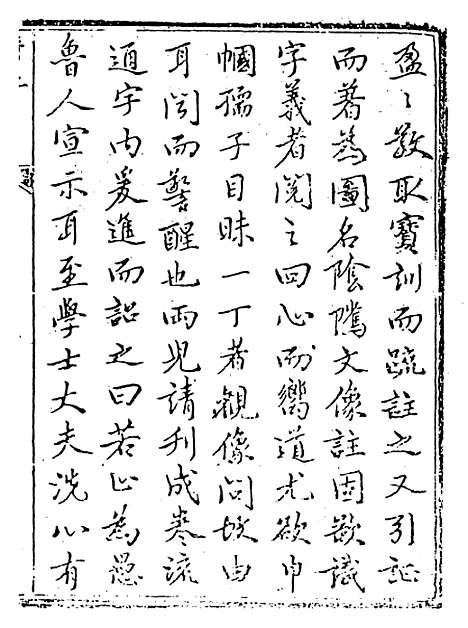 盈〻敬取寳訓而疏註之又引証
而著爲圖名陰隲文像註固欲識
字義者閱之回心而嚮道尤欲巾
幗孺子目昧一丁者觀像問故由
耳聞而警醒也兩兒請刊成卷流
通宇内爰進而詔之曰若止為愚
魯人宣示耳至學士大夫洗心有